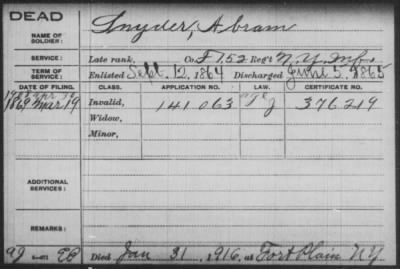 DEAD
NAME OF SOLDIER: Snyder, Abram
SERVICE: Late rank, Co. F 152 Reg't N.Y. Inf.
TERM OF SERVICE: Enlisted Sept. 12, 1864 Discharged June 5, 1865
DATE OF FILING. CLASS. APPLICATION NO. LAW. CERTIFICATE NO.
1869 Mar 19 Invalid, 141 063 376 219
Widow,
Minor,
ADDITIONAL SERVICES:
REMARKS:
Died Jan 31, 1916, at Fort Plain N.Y.